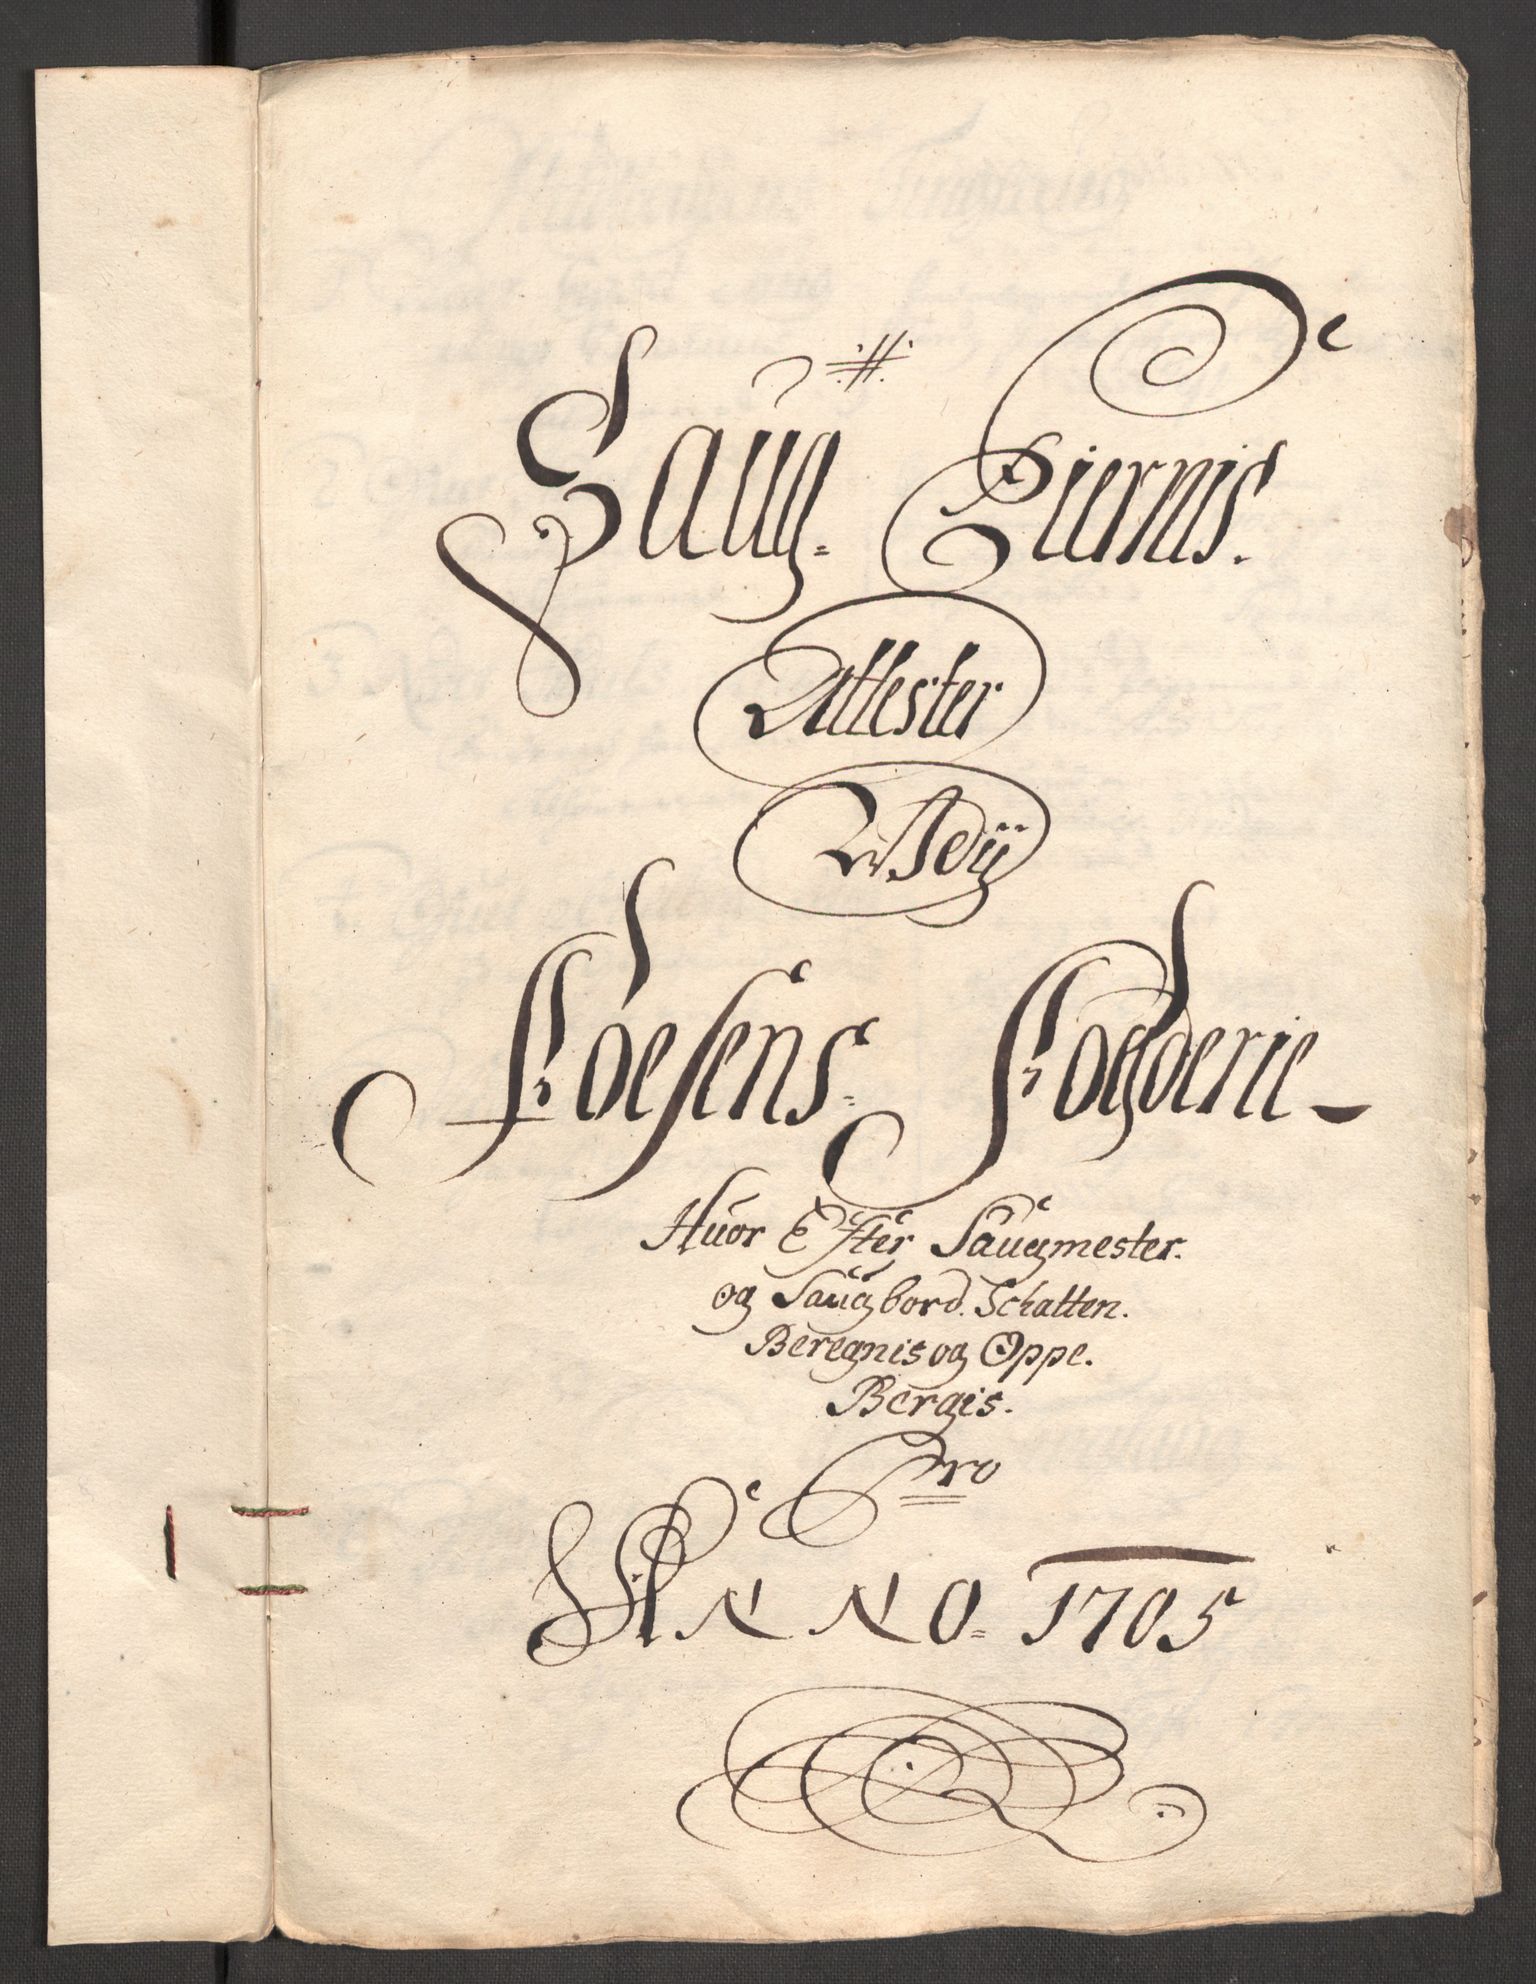 Saug= Giernis.
Attester
Udj
Fosens= Fogderie
Huor Efter Saugmester.
og Saugbord. Schatten.
Beregnis og Oppe.
Bergis.
Pro
ANNO= 1705